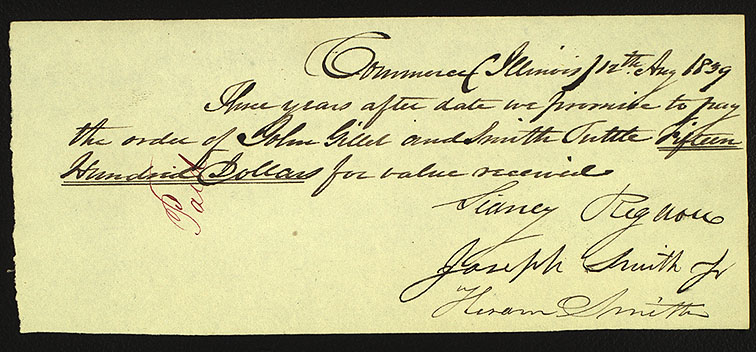 Commerce (Illinois) 12th. Aug 1839
Three years after date we promise to pay
the order of John Gillet and Smith Tuttle Fifteen
Hundred Dollars for value received
Paid
Sidney Rigdon
Joseph Smith Jr
Hiram Smith